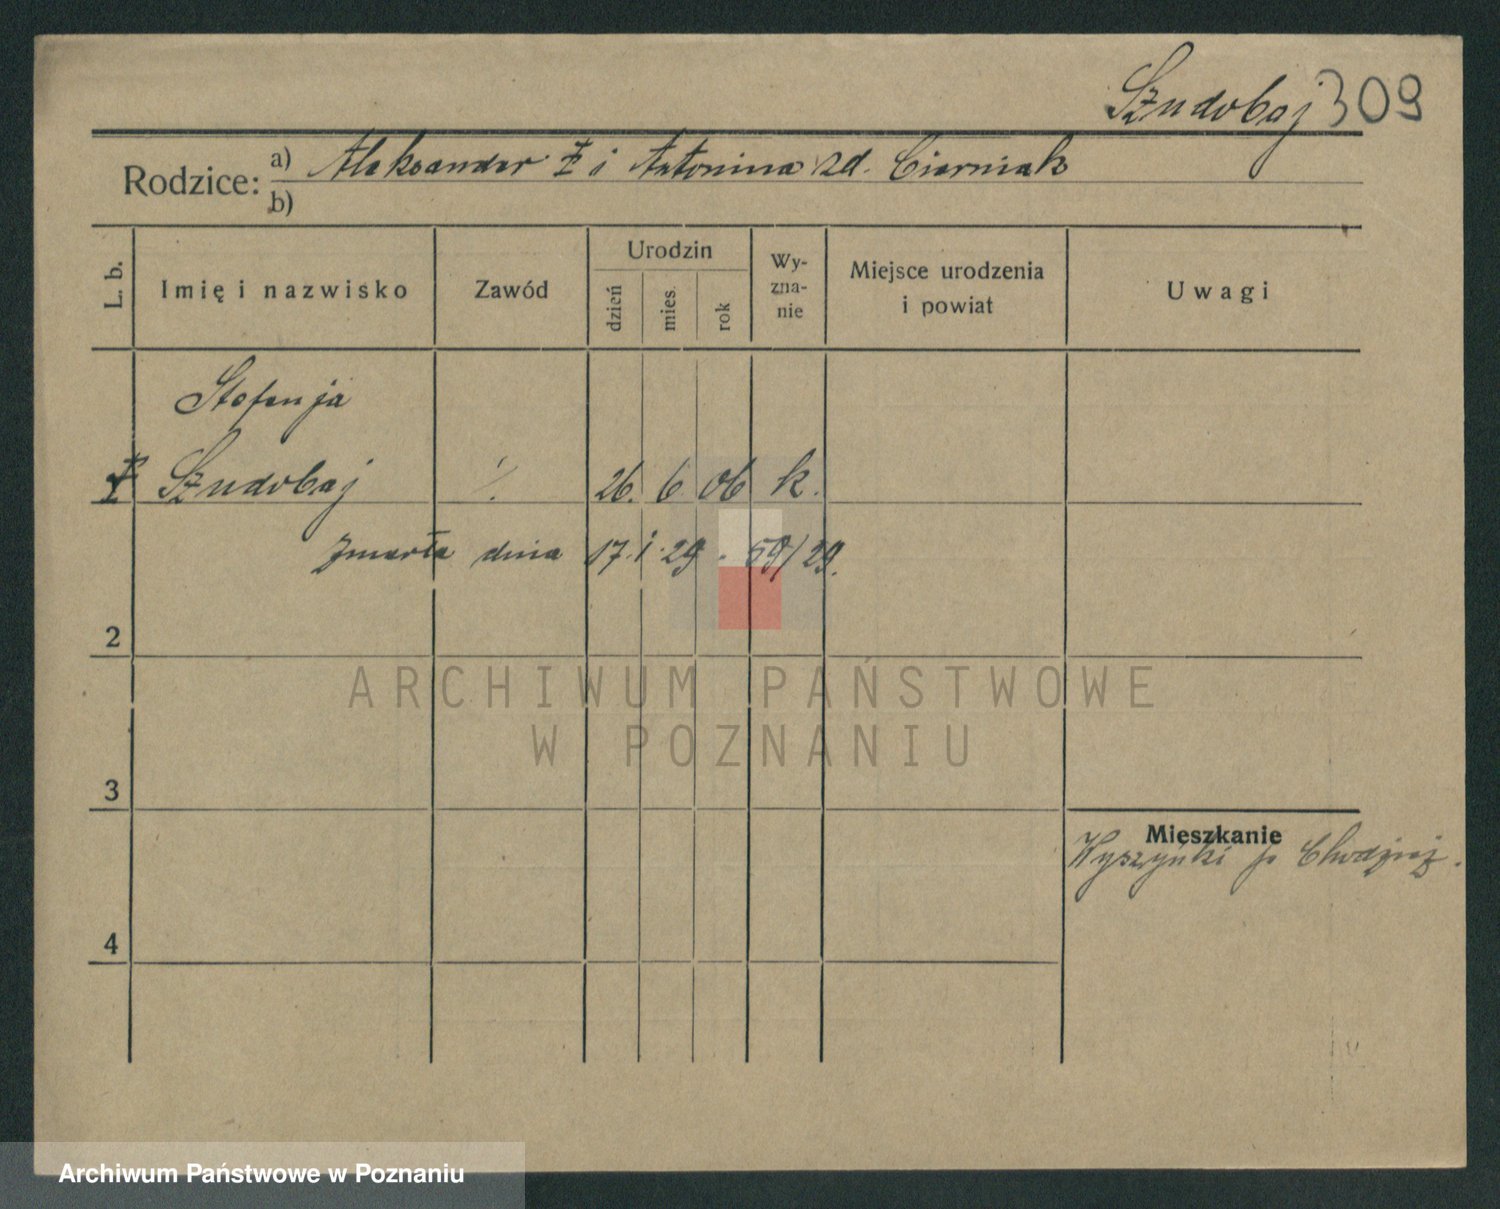 Szudobaj 309
Rodzice: a) Aleksander ‡ i Antonina zd. Cierniak
b)
L. b.
Imię i nazwisko
Zawód
Urodzin
dzień
mies.
rok
Wy-
zna-
nie
Miejsce urodzenia
i powiat
Uwagi
Stefanja
Szudobaj ⁒ 26. 6 06 k.
Zmarła dnia 17.1.29. 59/29.
2
3
4
Mieszkanie
Wyszynki p. Chodzież.
ARCHIWUM PAŃSTWOWE
W POZNANIU
Archiwum Państwowe w Poznaniu